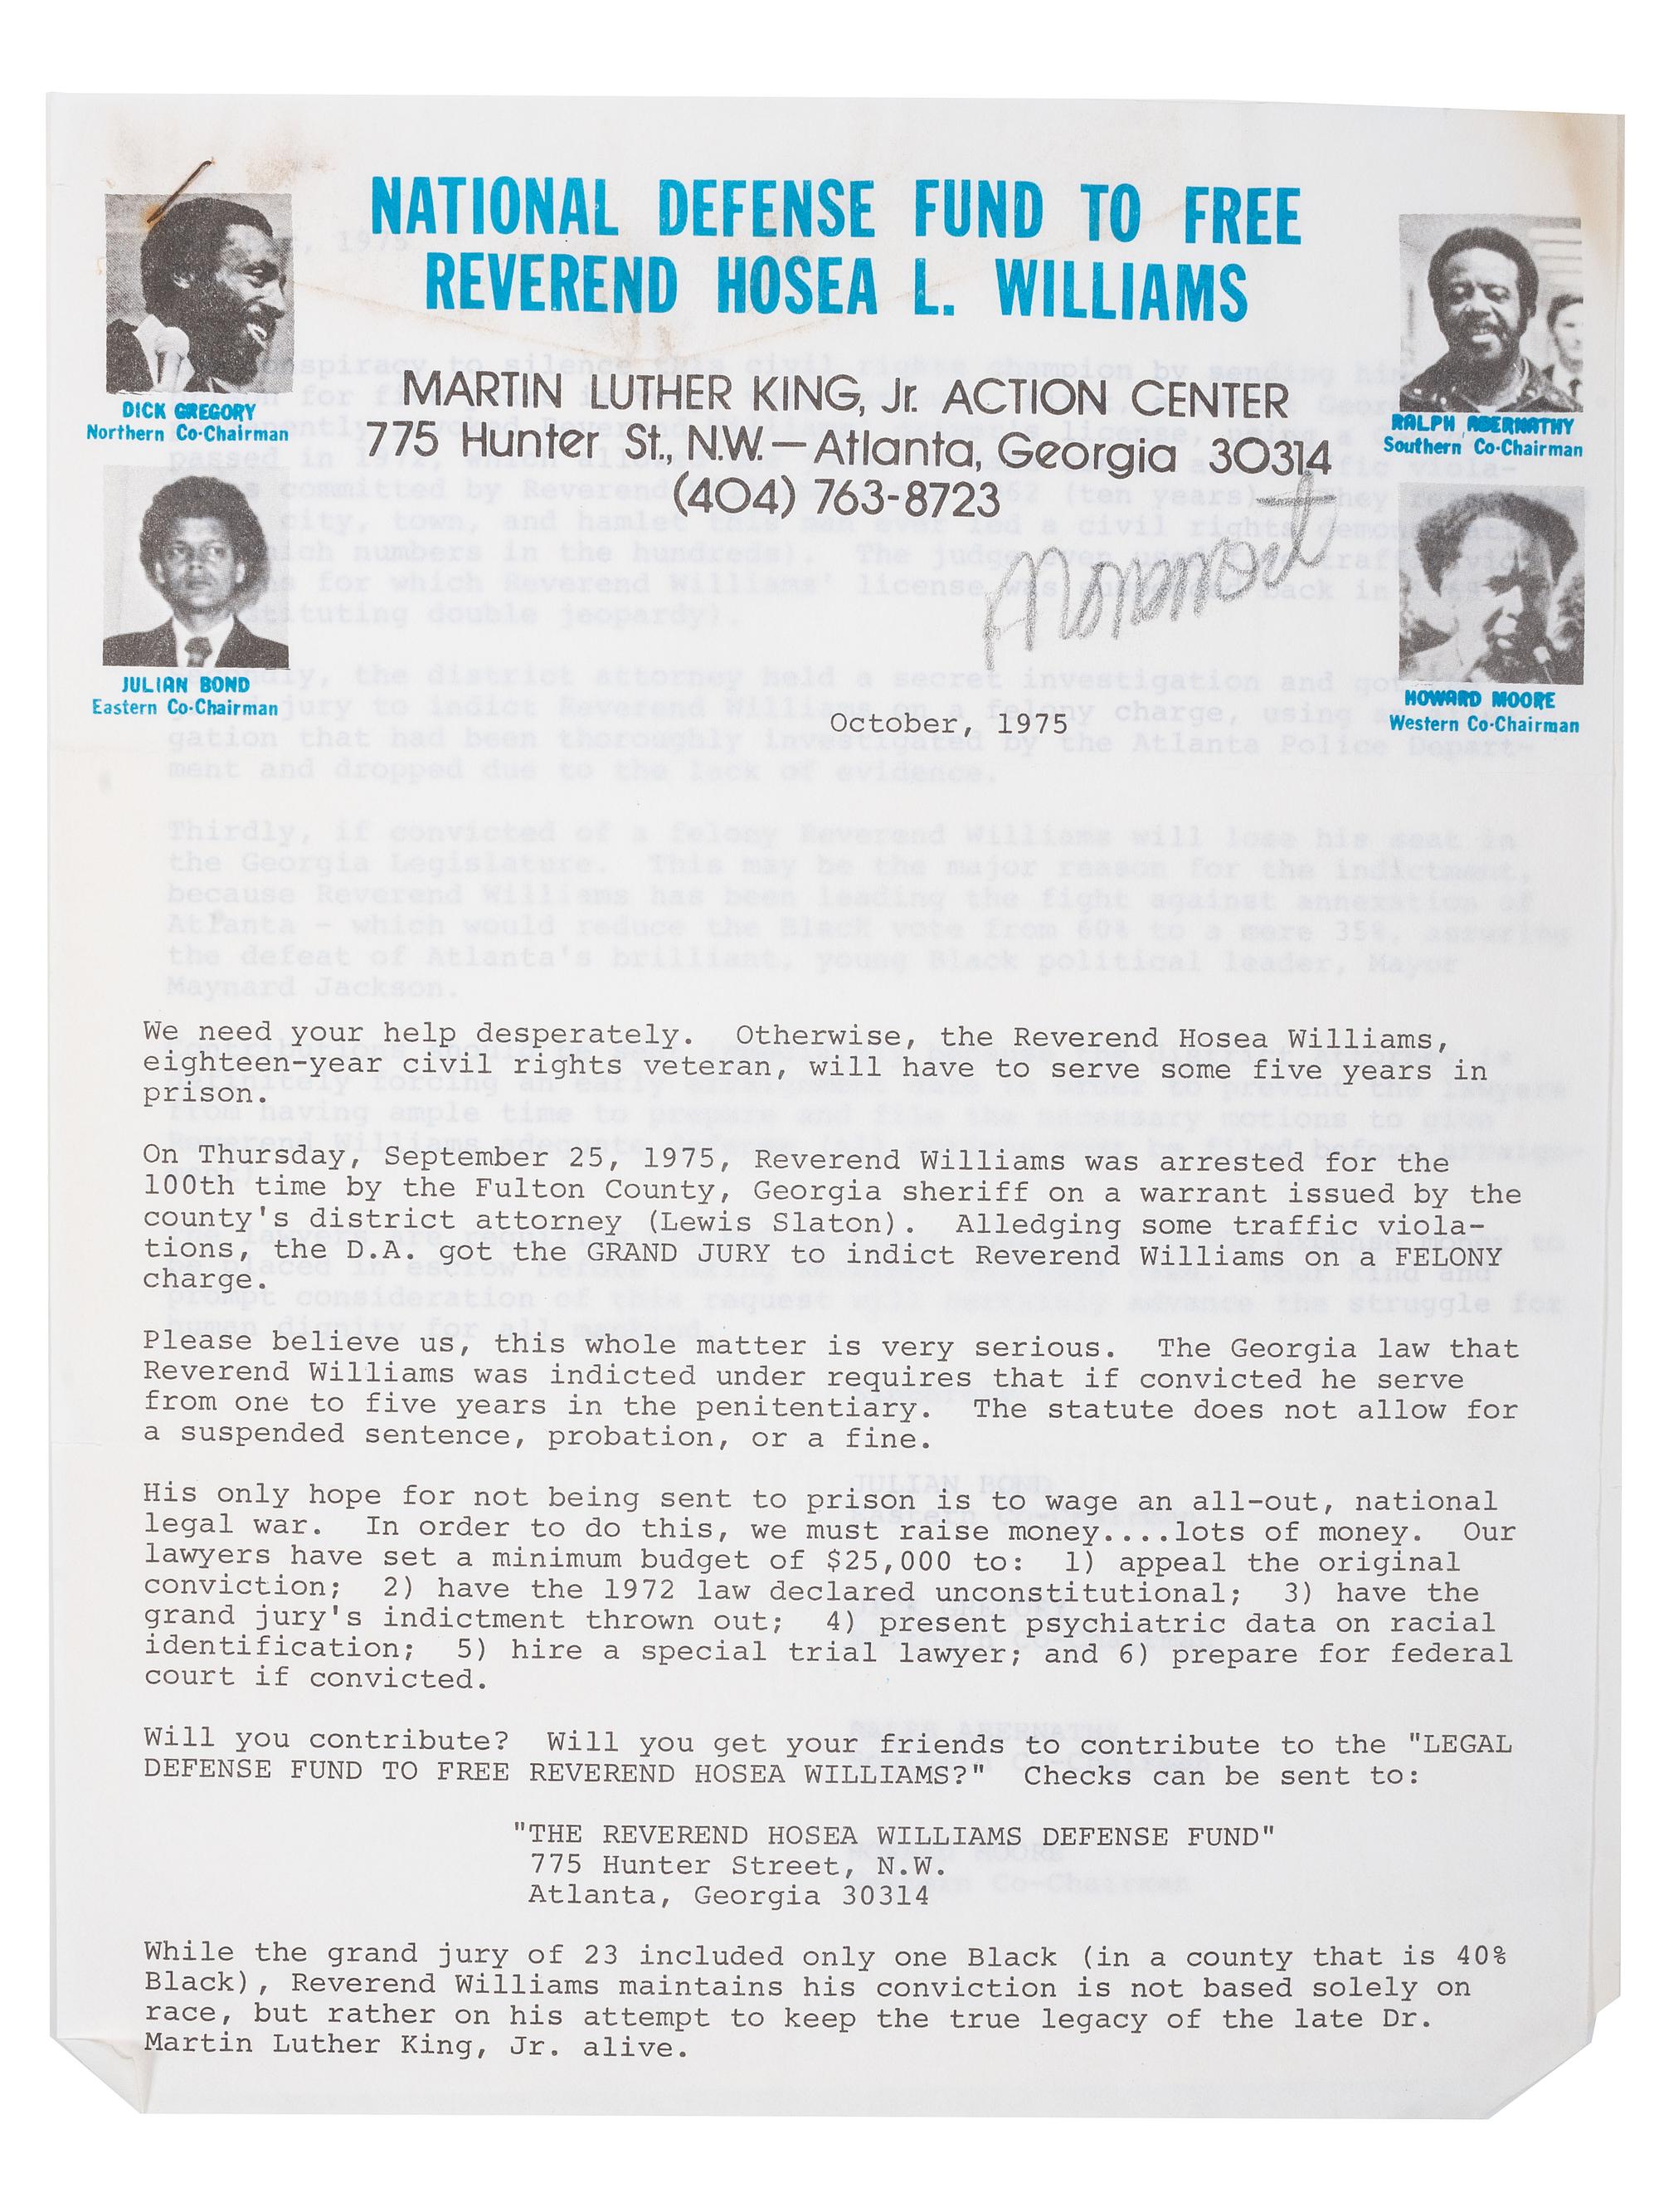 NATIONAL DEFENSE FUND TO FREE
REVEREND HOSEA L. WILLIAMS
MARTIN LUTHER KING, Jr. ACTION CENTER
775 Hunter St., N.W.—Atlanta, Georgia 30314
(404) 763-8723
DICK GREGORY
Northern Co-Chairman
RALPH ABERNATHY
Southern Co-Chairman
JULIAN BOND
Eastern Co-Chairman
HOWARD MOORE
Western Co-Chairman
October, 1975
We need your help desperately. Otherwise, the Reverend Hosea Williams,
eighteen-year civil rights veteran, will have to serve some five years in
prison.
On Thursday, September 25, 1975, Reverend Williams was arrested for the
100th time by the Fulton County, Georgia sheriff on a warrant issued by the
county's district attorney (Lewis Slaton). Alledging some traffic viola-
tions, the D.A. got the GRAND JURY to indict Reverend Williams on a FELONY
charge.
Please believe us, this whole matter is very serious. The Georgia law that
Reverend Williams was indicted under requires that if convicted he serve
from one to five years in the penitentiary. The statute does not allow for
a suspended sentence, probation, or a fine.
His only hope for not being sent to prison is to wage an all-out, national
legal war. In order to do this, we must raise money....lots of money. Our
lawyers have set a minimum budget of $25,000 to: 1) appeal the original
conviction; 2) have the 1972 law declared unconstitutional; 3) have the
grand jury's indictment thrown out; 4) present psychiatric data on racial
identification; 5) hire a special trial lawyer; and 6) prepare for federal
court if convicted.
Will you contribute? Will you get your friends to contribute to the "LEGAL
DEFENSE FUND TO FREE REVEREND HOSEA WILLIAMS?" Checks can be sent to:
"THE REVEREND HOSEA WILLIAMS DEFENSE FUND"
775 Hunter Street, N.W.
Atlanta, Georgia 30314
While the grand jury of 23 included only one Black (in a county that is 40%
Black), Reverend Williams maintains his conviction is not based solely on
race, but rather on his attempt to keep the true legacy of the late Dr.
Martin Luther King, Jr. alive.